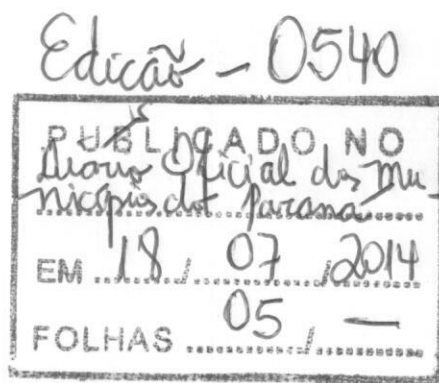 Edição - 0540
PUBLICADO NO
Diário Oficial dos Mu
nicípios do Paraná
EM 18 / 07 / 2014
FOLHAS 05 / —